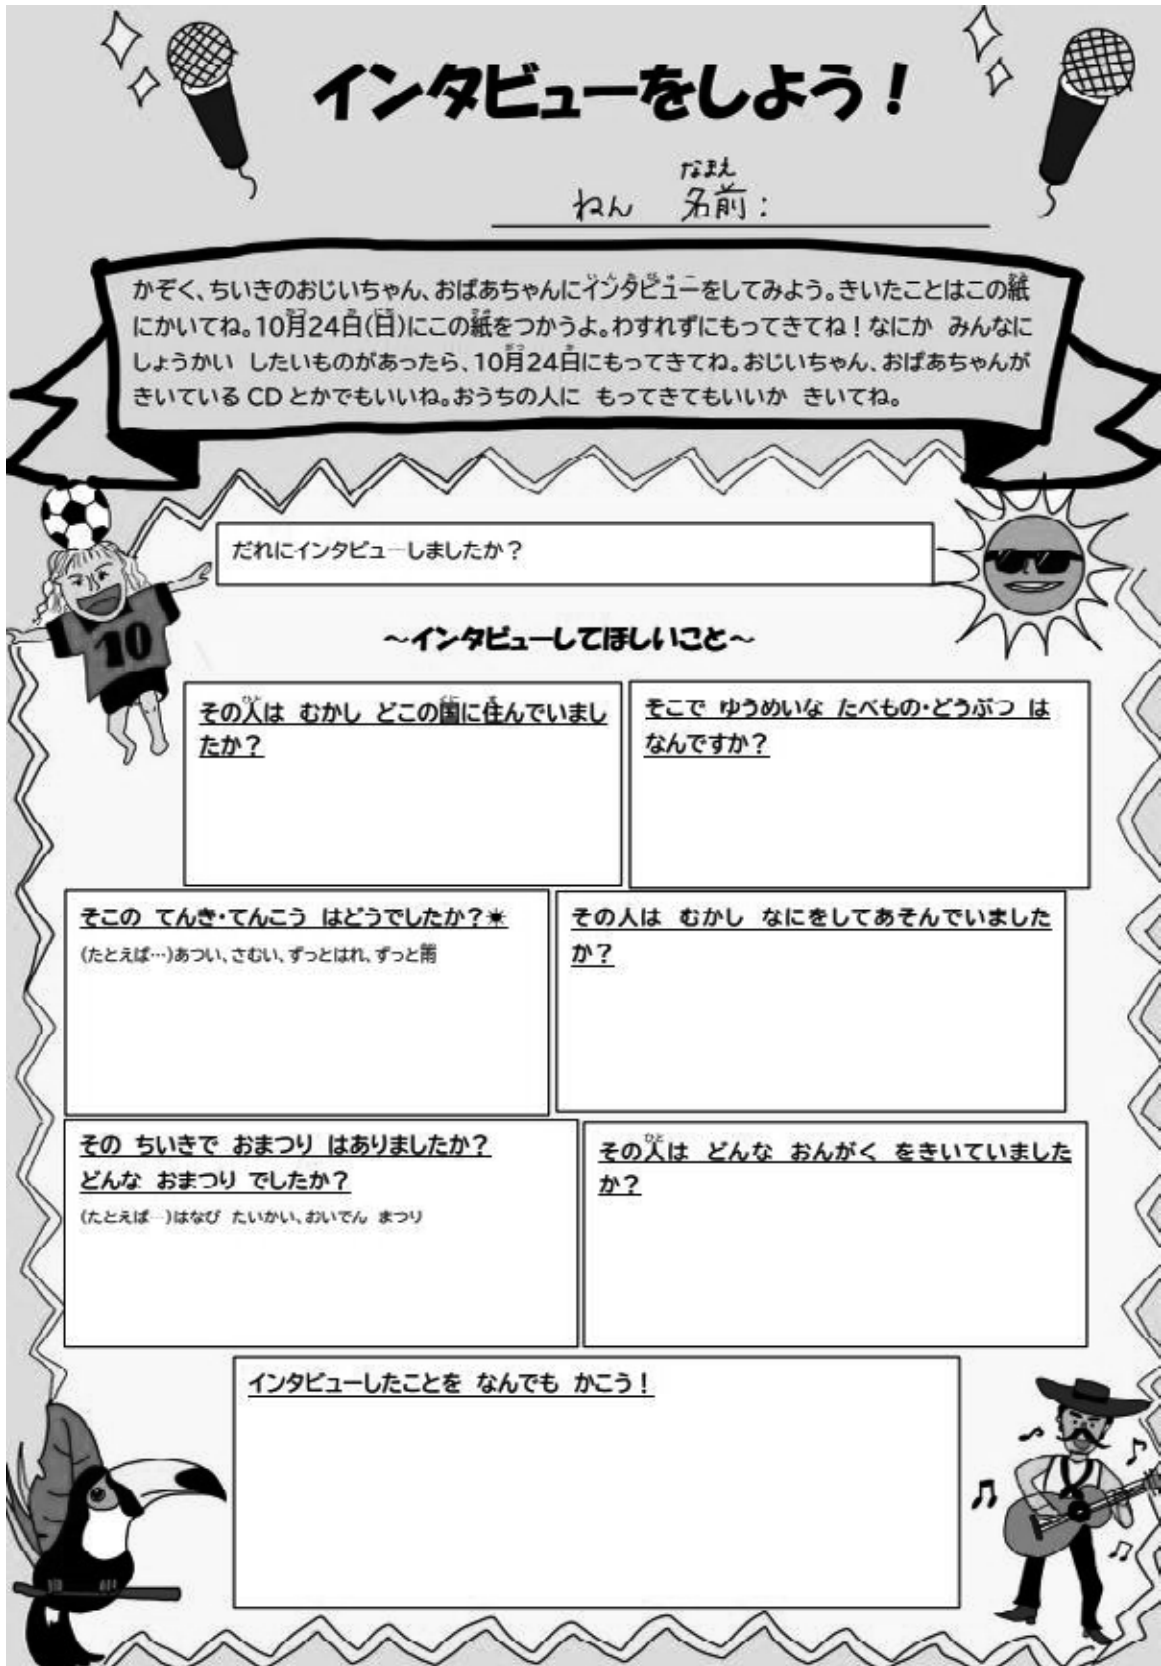 インタビューをしよう！
なまえ
ねん 名前：
いんたびゅー かみ
かぞく、ちいきのおじいちゃん、おばあちゃんにインタビューをしてみよう。きいたことはこの紙
がつ か にち かみ
にかいてね。10月24日(日)にこの紙をつかうよ。わすれずにもってきてね！なにか みんなに
がつ か
しょうかい したいものがあったら、10月24日にもってきてね。おじいちゃん、おばあちゃんが
きいている CD とかでもいいね。おうちの人に もってきてもいいか きいてね。
だれにインタビューしましたか？
10
～インタビューしてほしいこと～
ひと くに す
その人は むかし どこの国に住んでいまし
たか？
そこで ゆうめいな たべもの・どうぶつ は
なんですか？
そこの てんき・てんこう はどうでしたか？☀
(たとえば…)あつい、さむい、ずっとはれ、ずっと雨
その人は むかし なにをしてあそんでいました
か？
その ちいきで おまつり はありましたか？
どんな おまつり でしたか？
(たとえば…)はなび たいかい、おいでん まつり
ひと
その人は どんな おんがく をきいていました
か？
インタビューしたことを なんでも かこう！